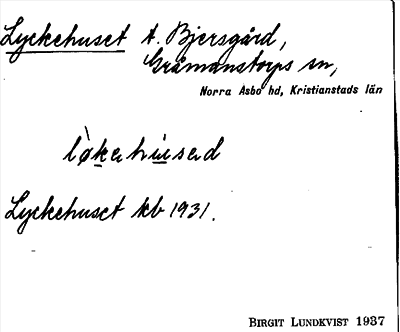 Lyckehuset t. Bjersgård,
Gråmanstorps sn,
Norra Åsbo hd, Kristianstads län
lø̀kəhu̱səd
Lyckehuset kb 1931.
BIRGIT LUNDKVIST 1937